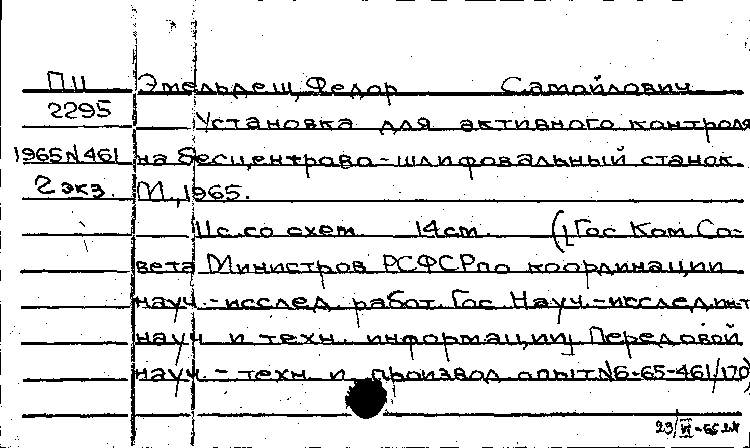 ПИ Эмельдеш, Федор Самойлович
2295 Установка для активного контроля
1965 N 461 на бесцентрово-шлифовальный станок.
2 экз. М., 1965.
11 с. со схем. 14 см. ([Гос Ком. Со-
вета Министров РСФСР по координации
науч.-исслед. работ. Гос Науч.-исслед. ин-т
науч и техн. информации] Передовой
науч.-техн и производ опыт. N 6-65-461/170)